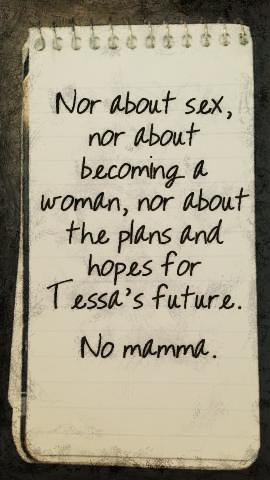 Nor about sex,
nor about
becoming a
woman, nor about
the plans and
hopes for
Tessa's future.
No mamma.